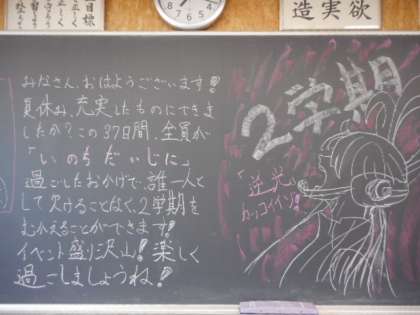 造実欲
みなさん、おはようございます!!
夏休み、充実したものにできま
したか?この37日間、全員が
「いのちだいじに」
過ごしたおかげで、誰一人と
して欠けることなく、2学期を
むかえることができます!
イベント盛り沢山!楽しく
過ごしましょうね!!
2学期
「逆光」
カッコイイゾ!